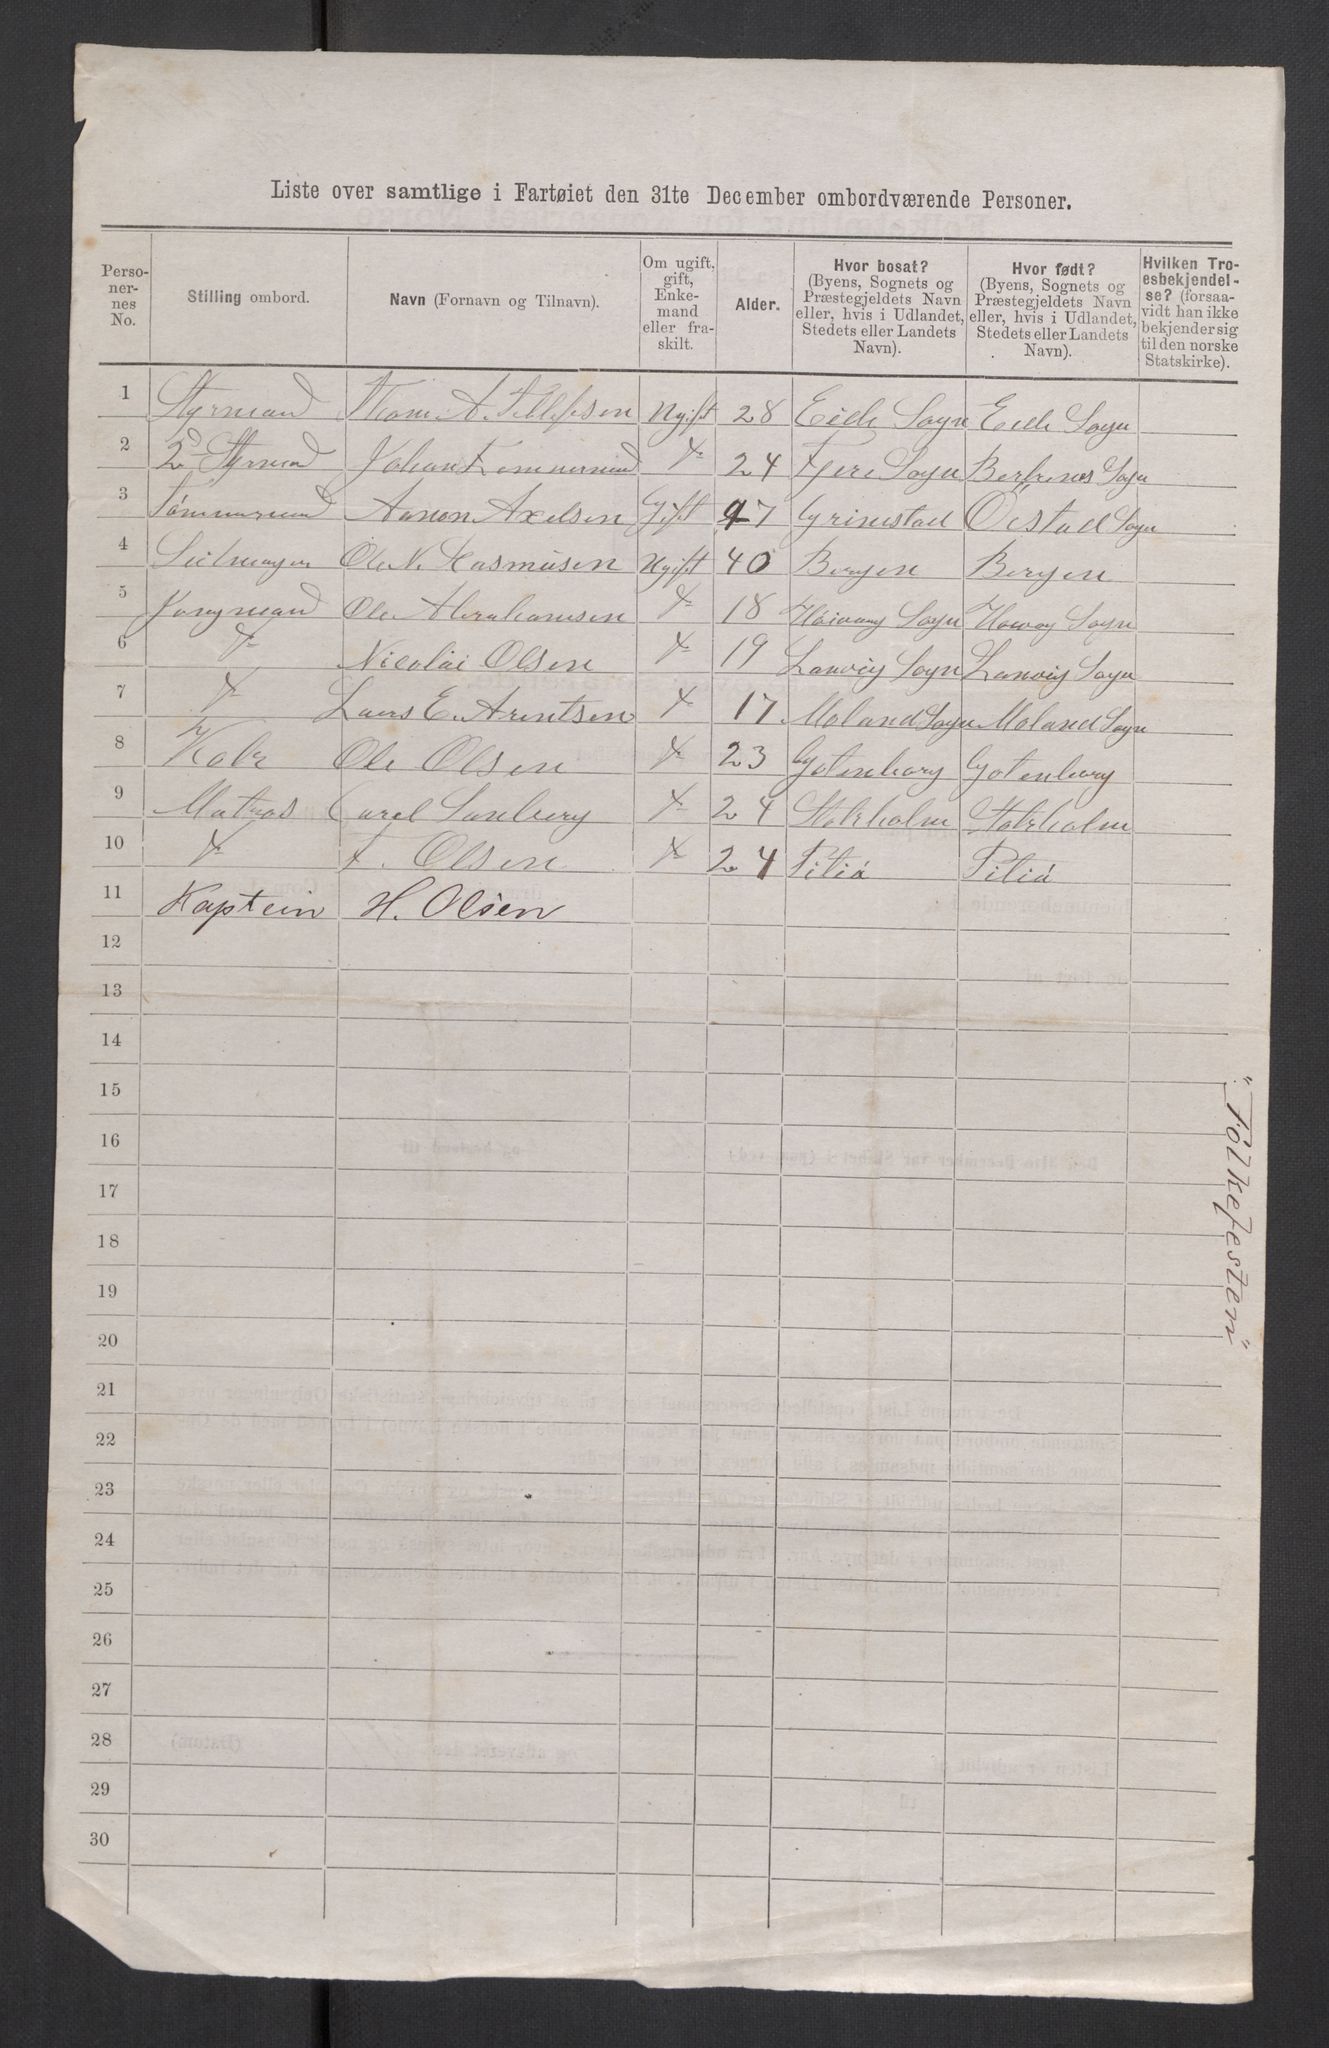 Liste over samtlige i Fartøiet den 31te December ombordværende Personer.
Perso-
ner-
nes
No.
Stilling ombord.
Navn (Fornavn og Tilnavn).
Om ugift,
gift,
Enke-
mand
eller fra-
skilt.
Alder.
Hvor bosat?
(Byens, Sognets og
Præstegjeldets Navn
eller, hvis i Udlandet,
Stedets eller Landets
Navn).
Hvor født?
(Byens, Sognets og
Præstegjeldets Navn
eller, hvis i Udlandet,
Stedets eller Landets
Navn).
Hvilken Tro-
esbekjendel-
se? (forsaa-
vidt han ikke
bekjender sig
til den norske
Statskirke).
1 Styrmand A. Tellefsen Ugift 28 Eide Sogn Eide Sogn
2 2d Styrmand Johan 24 Fjere Sogn Sogn
3 Tømmermand Aanon Axelsen Gift 47 Grimstad Öistad Sogn
4 Seilmager Ole N. Rasmusen Ugift 40 Bergen Bergen
5 Jungmand Ole Abrahamsen 18 Høivaag Sogn Sogn
6 Nicolai Olsen 19 Lanvig Sogn Lanvig Sogn
7 Laurs E. Arentsen 17 Moland Sogn Moland Sogn
8 Kok Ole Olsen 23 Gotenborg Gotenborg
9 Matros Carel Sunberg 24 Stokholm Stokholm
10 F. Olsen 24 Pitiå Pitiå
11 Kaptein H. Olsen
12
13
14
15
16
17
18
19
20
21
22
23
24
25
26
27
28
29
30
"Folkefesten"